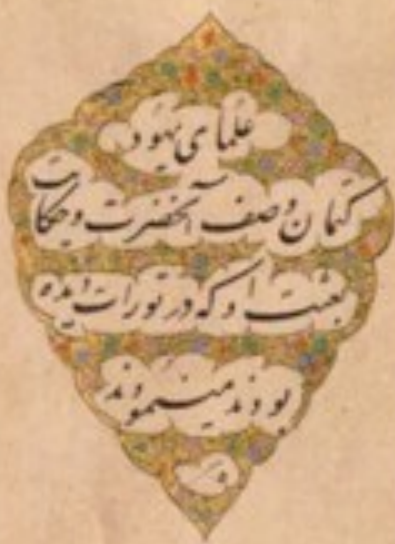 علمای یهود
کتمان وصف آنحضرت و حکایت
بعثت او که در تورات دیده
بودند مینمودند